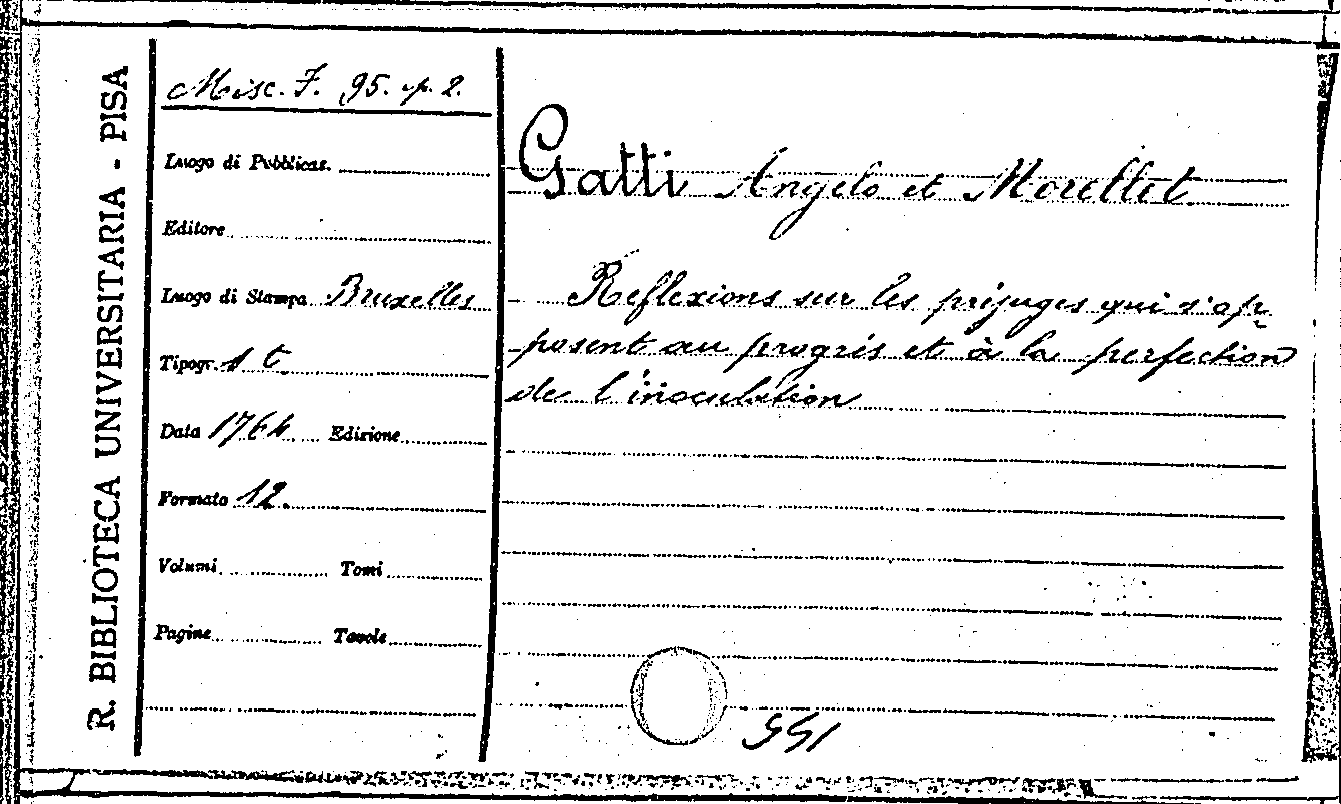 R. BIBLIOTECA UNIVERSITARIA - PISA
Misc. F. 95. op. 2.
Luogo di Pubblicaz.
Editore
Luogo di Stampa Bruxelles
Tipogr. s t.
Data 1764 Edizione
Formato 12.
Volumi Tomi
Pagine Tavole
Gatti Angelo et Morellet
Reflexions sur les prijuges qui s'op-
posent au progrés et à la perfection
de l'inoculation